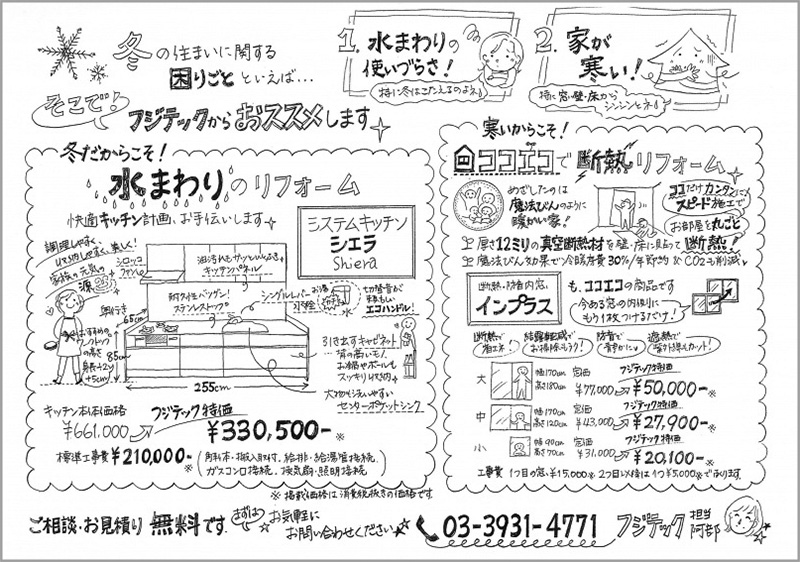 冬の住まいに関する
困りごと といえば…
1. 水まわりの
使いづらさ!
特に冬はこたえるのよネ
2. 家が
寒い!
特に窓・壁・床から
シンシンとネ
そこで!
フジテックからおススメします
冬だからこそ!
水まわりのリフォーム
快適キッチン計画、お手伝いします
システムキッチン
シエラ
Shiera
調理しやすく、
家族の元気の
源
シロッコ
ファン
油汚れもサッとひとふき
キッチンパネル
耐久性バツグン!
ステンレストップ
シングルレバー
水栓
切替音が
エコハンドル!
奥行き
65cm
85cm
255cm
おすすめの
ワークトップ
の高さ
身長÷2
+5cm
引き出すキャビネット
背の高いモノ、
お鍋やボールも
スッキリ収納
大物も洗いやすい
センターポケットシンク
キッチン本体価格
¥661,000
フジテック特価
¥330,500-※
標準工事費¥210,000-※
解体・搬入取付、給排・給湯管接続、
ガスコンロ接続、換気扇・照明接続
寒いからこそ!
ココエコで断熱リフォーム
めざしたのは
魔法びんのように
暖かい家!
ココだけカンタンに
スピード施工で
お部屋を丸ごと
断熱!
厚さ12ミリの真空断熱材を壁・床に貼って
魔法びん効果で冷暖房費30%/年節約&CO2も削減
断熱・防音内窓
インプラス
も、ココエコの商品です
今ある窓の内側に
もう1枚つけるだけ!
断熱で
省エネ!
結露軽減で
お掃除らくラク!
防音で
静かに
遮熱で
紫外線カット!
大
幅170cm
高さ180cm
定価
¥77,000
フジテック特価
¥50,000-※
中
幅170cm
高さ120cm
定価
¥43,000
フジテック特価
¥27,900-※
小
幅90cm
高さ70cm
定価
¥31,000
フジテック特価
¥20,100-※
工事費 1つ目の窓、¥15,000※ 2つ目以降は1つ¥5,000※で承ります。
※掲載価格は消費税抜きの価格です
ご相談・お見積り 無料です。
まずは
お気軽に
お問い合わせください
03-3931-4771
フジテック
担当
阿部